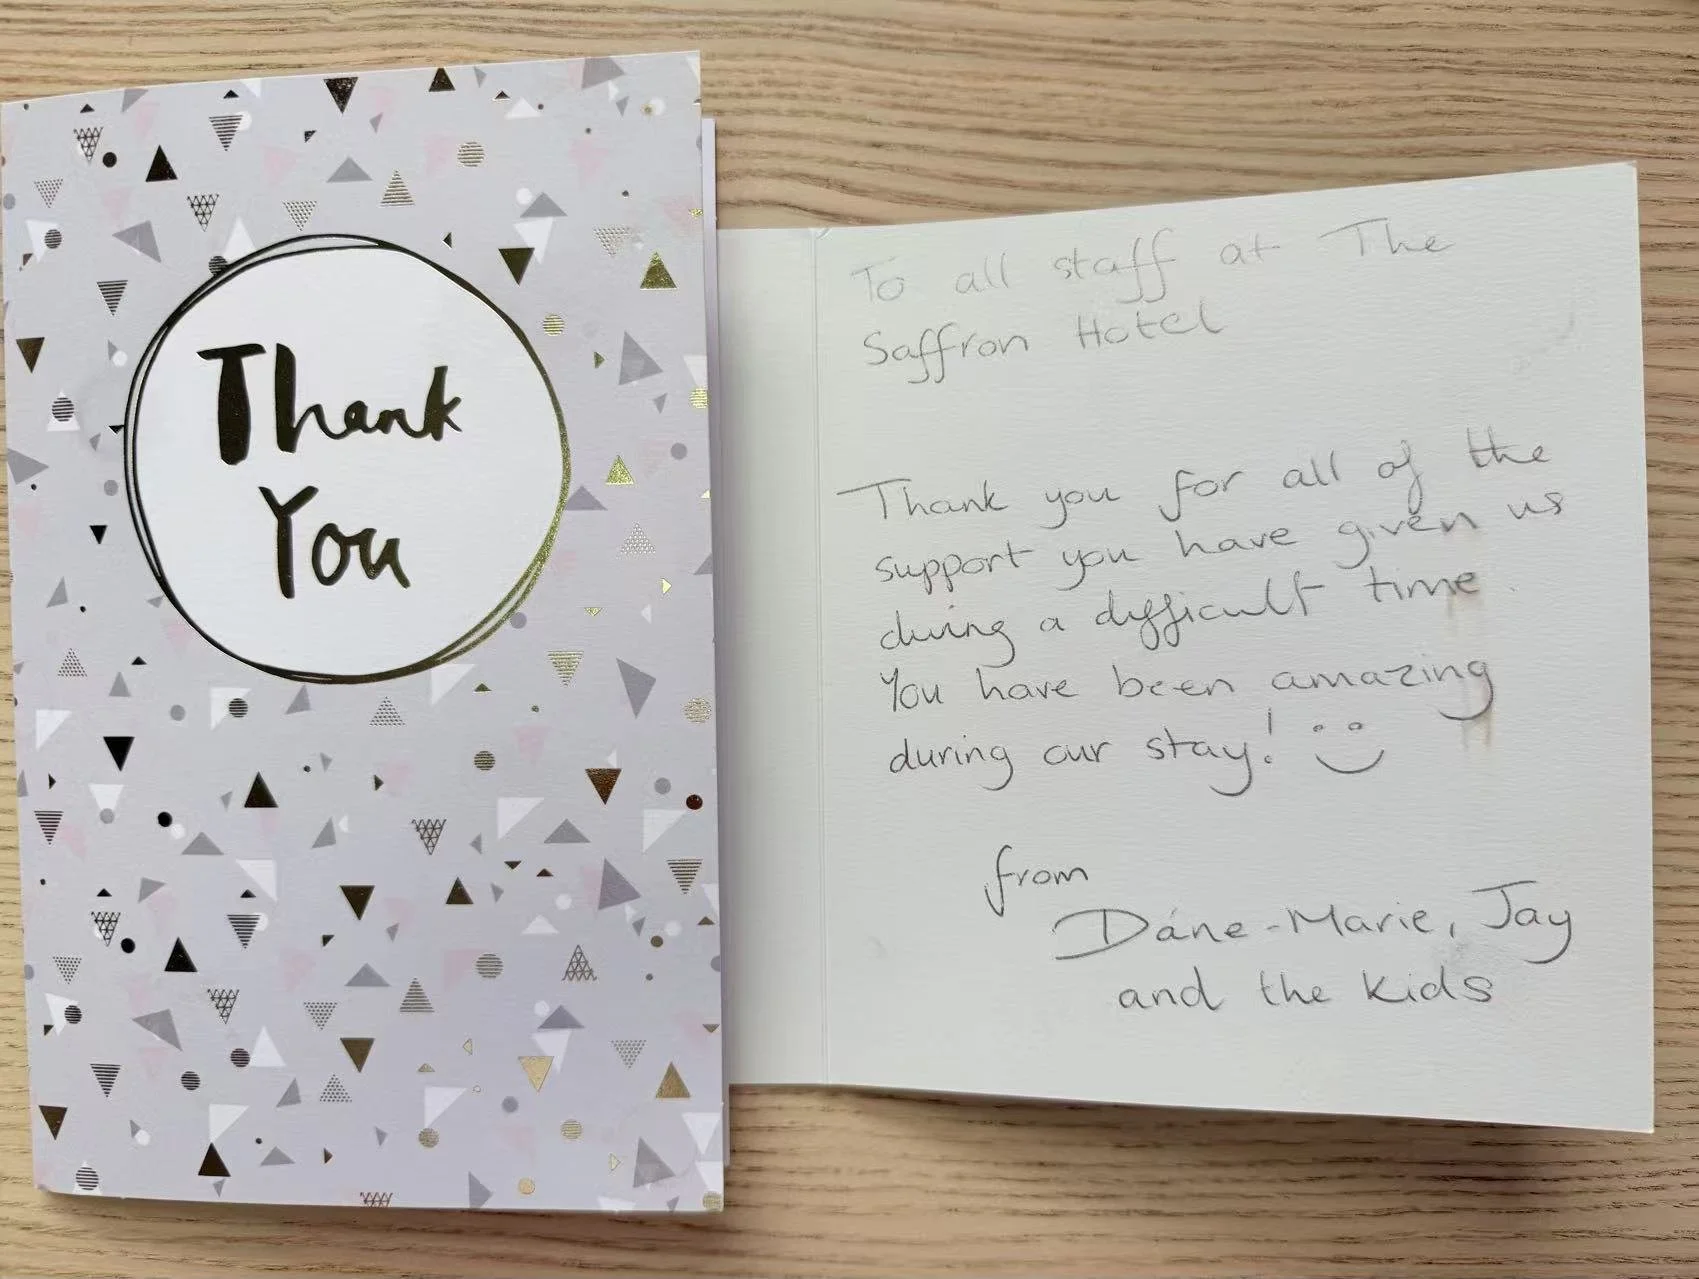 Thank
You
To all staff at The
Saffron Hotel
Thank you for all of the
support you have given us
during a difficult time.
You have been amazing
during our stay!
from
Dane-Marie, Jay
and the kids